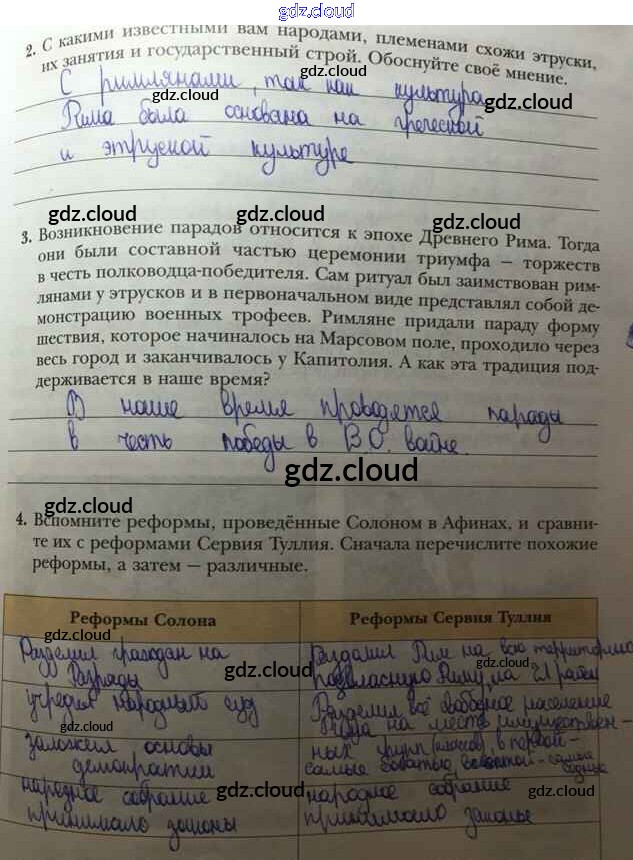 gdz.cloud
2. С какими известными вам народами, племенами схожи этруски,
их занятия и государственный строй. Обоснуйте своё мнение.
gdz.cloud gdz.cloud
С римлянами, так как культура
gdz.cloud
Рима была основана на греческой
и этруской культуре
gdz.cloud gdz.cloud
3. Возникновение парадов относится к эпохе Древнего Рима. Тогда
они были составной частью церемонии триумфа — торжеств
в честь полководца-победителя. Сам ритуал был заимствован рим-
лянами у этрусков и в первоначальном виде представлял собой де-
монстрацию военных трофеев. Римляне придали параду форму
шествия, которое начиналось на Марсовом поле, проходило через
весь город и заканчивалось у Капитолия. А как эта традиция под-
держивается в наше время?
gdz.cloud gdz.cloud
В наше время проводятся парады
в честь победы в В.О. войне.
gdz.cloud
gdz.cloud
4. Вспомните реформы, проведённые Солоном в Афинах, и сравни-
те их с реформами Сервия Туллия. Сначала перечислите похожие
реформы, а затем — различные.
gdz.cloud gdz.cloud
Реформы Солона Реформы Сервия Туллия
gdz.cloud
Разделил граждан на Рим на всю территорию
gdz.cloud gdz.cloud
Разряды Риму, на 21 район
учредил народный суд Разделил всё свободное население
gdz.cloud
на имуществен-
заложил основы ных групп (классов), в первой-
демократии самые богатые,
gdz.cloud gdz.cloud
народное собрание народное собрание
принимало законы принимало законы
gdz.cloud